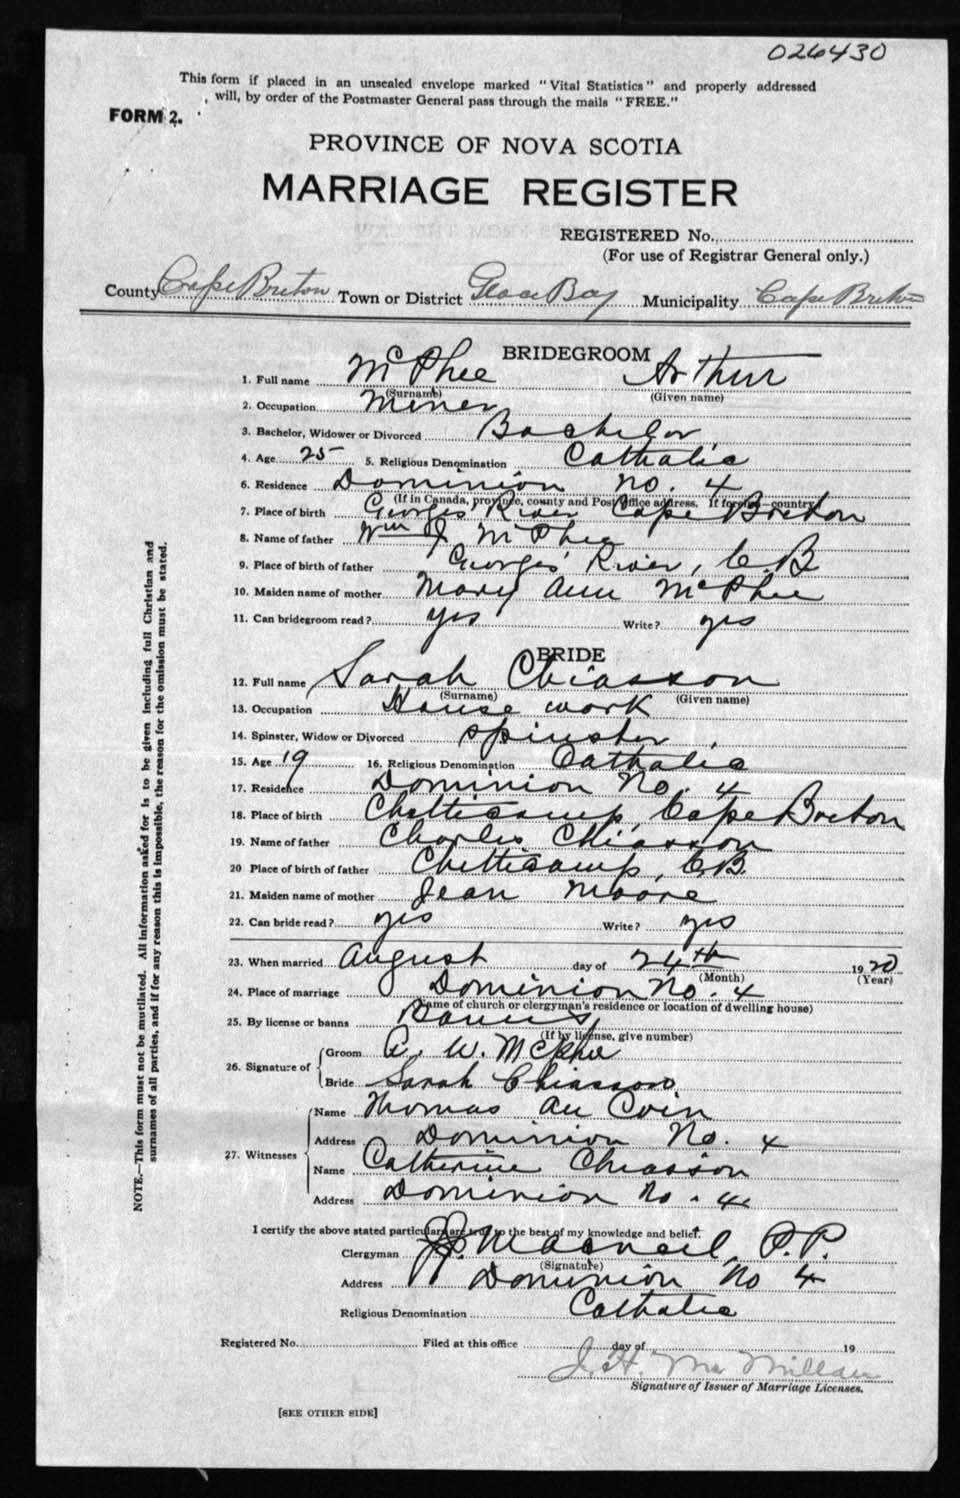 026430
This form if placed in an unsealed envelope marked "Vital Statistics" and properly addressed
will, by order of the Postmaster General pass through the mails "FREE."
FORM 2.
PROVINCE OF NOVA SCOTIA
MARRIAGE REGISTER
REGISTERED No.
(For use of Registrar General only.)
County Cape Breton Town or District Glace Bay Municipality Cape Breton
BRIDEGROOM
1. Full name McPhee Arthur
(Surname) (Given name)
2. Occupation Miner
3. Bachelor, Widower or Divorced Bachelor
4. Age 25 5. Religious Denomination Catholic
6. Residence Dominion No. 4
(If in Canada, province, county and Post Office address. If foreign—country)
7. Place of birth Georges River Cape Breton
8. Name of father Wm J. McPhee
9. Place of birth of father Georges River, C.B
10. Maiden name of mother Mary Ann McPhee
11. Can bridegroom read? yes Write? yes
BRIDE
12. Full name Sarah Chiasson
(Surname) (Given name)
13. Occupation House work
14. Spinster, Widow or Divorced Spinster
15. Age 19 16. Religious Denomination Catholic
17. Residence Dominion No. 4
18. Place of birth Chetticamp, Cape Breton
19. Name of father Charles Chiasson
20 Place of birth of father Chetticamp, C.B.
21. Maiden name of mother Jean Moore
22. Can bride read? yes Write? yes
23. When married August day of 24th 1920
(Month) (Year)
24. Place of marriage Dominion No. 4
(Name of church or clergyman's residence or location of dwelling house)
25. By license or banns Banns
(If by license, give number)
26. Signature of Groom A. W. McPhee
Bride Sarah Chiasson
27. Witnesses Name Thomas Au Coin
Address Dominion No. 4
Name Catherine Chiasson
Address Dominion No. 4
I certify the above stated particulars are true to the best of my knowledge and belief.
Clergyman MacNeil, P.P.
(Signature)
Address Dominion No 4
Religious Denomination Catholic
Registered No. Filed at this office day of 19
J. H. McMillan
Signature of Issuer of Marriage Licenses.
[SEE OTHER SIDE]
NOTE.—This form must not be mutilated. All information asked for is to be given including full Christian and
surnames of all parties, and if for any reason this is impossible, the reason for the omission must be stated.